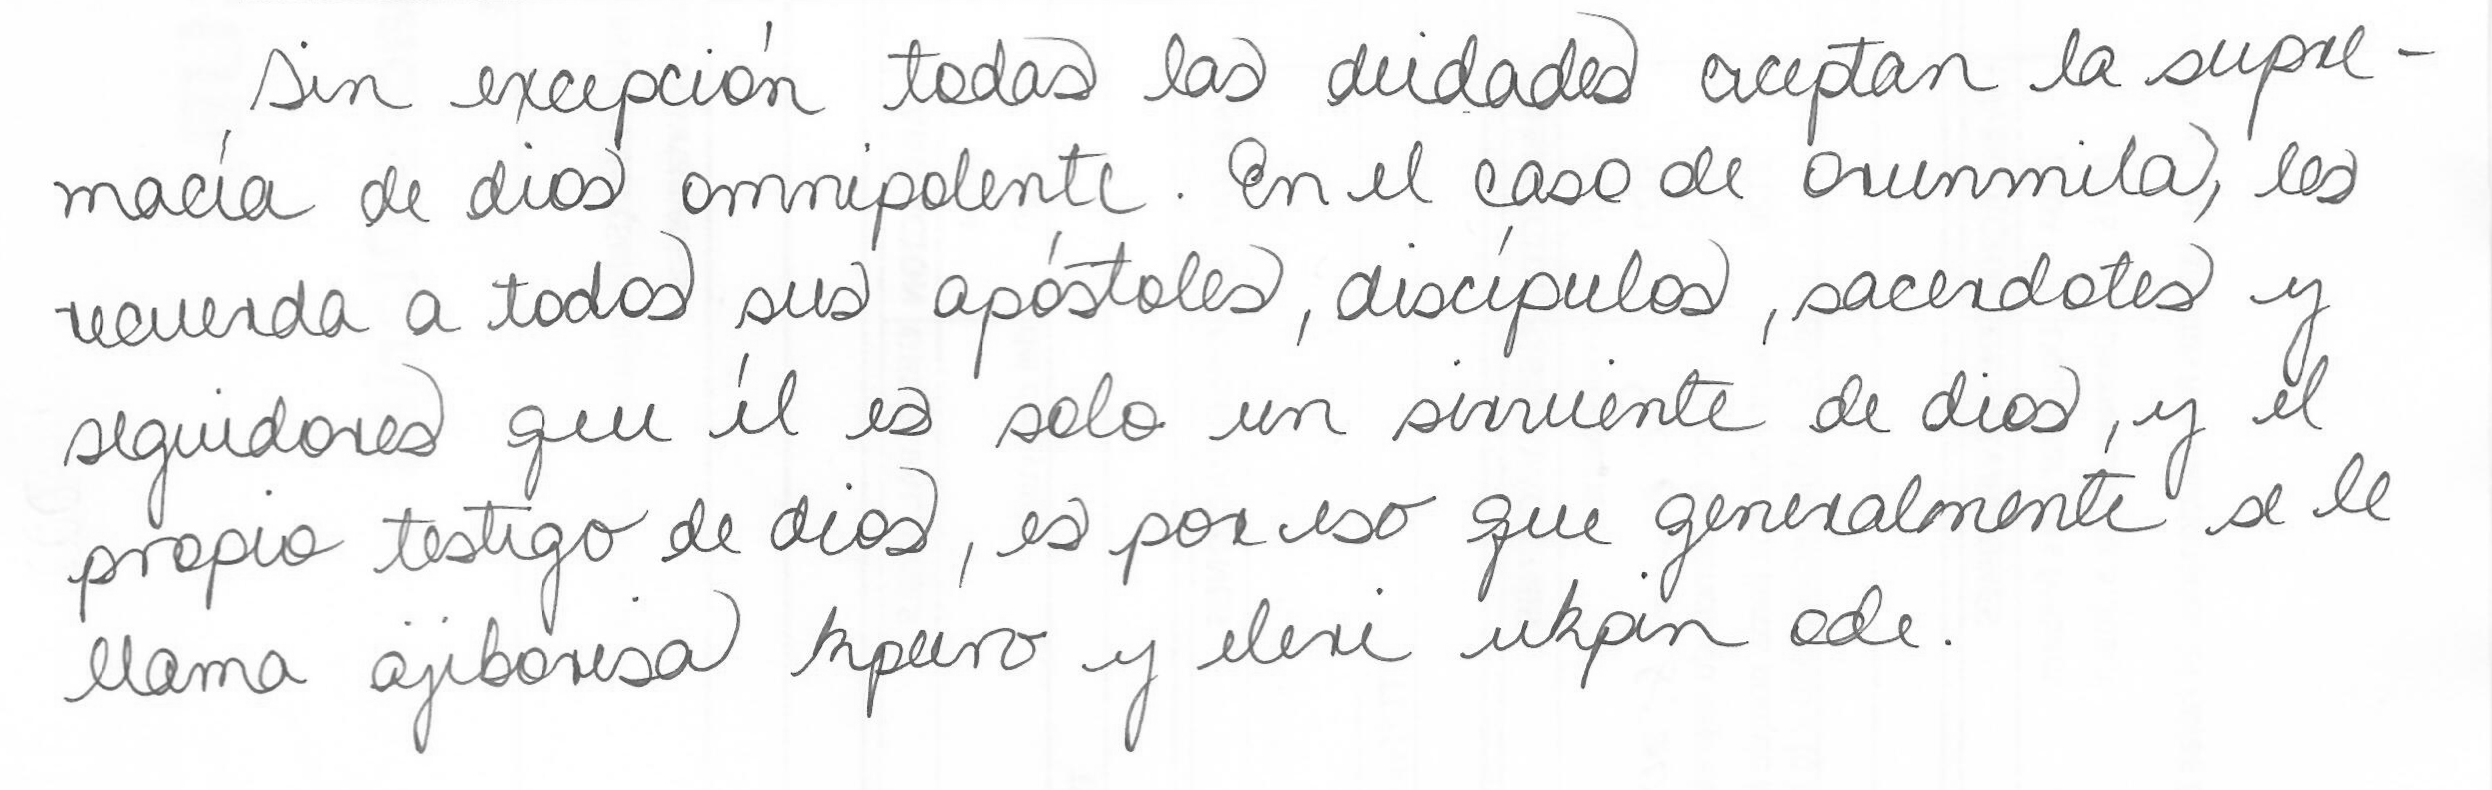 Sin excepción todas las deidades aceptan la supre-
macía de dios omnipotente. En el caso de orunmila, les
recuerda a todos sus apóstoles, discípulos, sacerdotes y
seguidores que él es solo un sirviente de dios, y el
propio testigo de dios, es por eso que generalmente se le
llama ajiborisa kpuro y eleri ukpin ode.